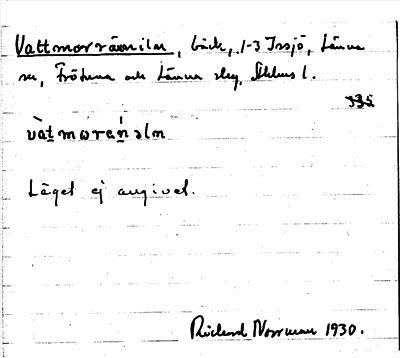 Vattmorränniln, bäck, 1-3 Issjö, Länna
sn, Frötuna och Länna slg, Sthlms l.
335
vàt̲morän̲əln
Läget ej angivet.
Rickard Norrman 1930.